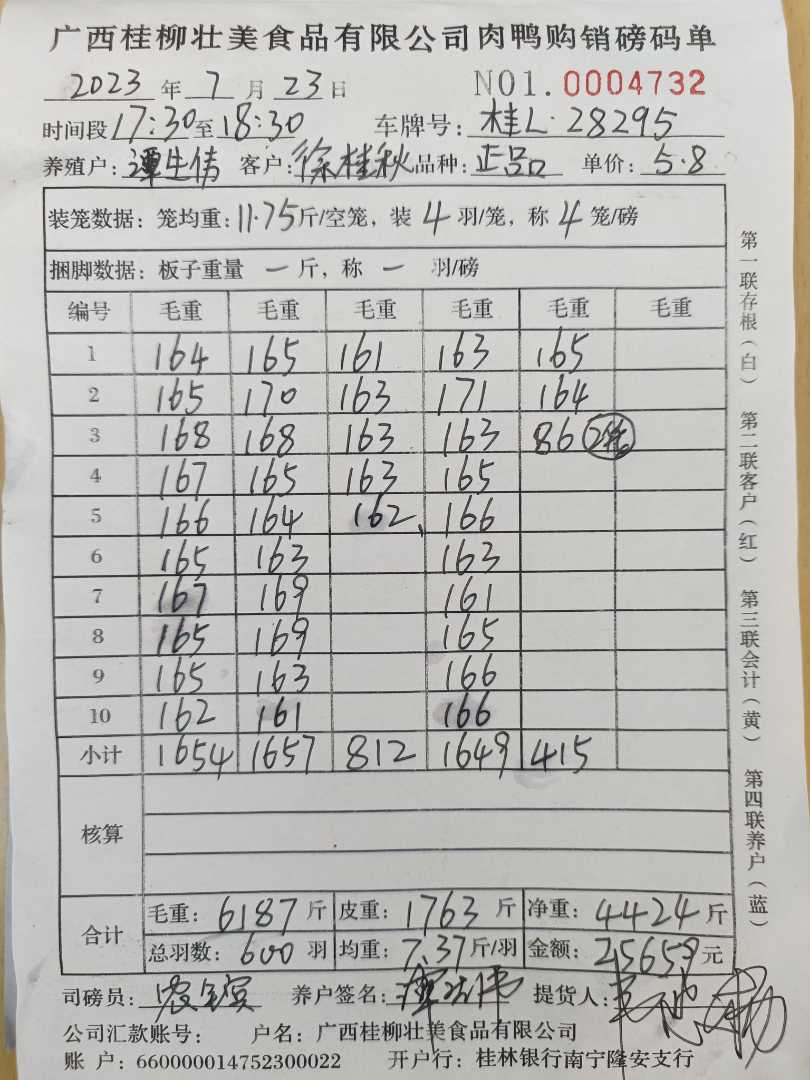 广西桂柳壮美食品有限公司肉鸭购销磅码单
2023 年 7 月 23 日 NO1. 0004732
时间段 17:30 至 18:30 车牌号: 桂L·28295
养殖户: 谭生伟 客户: 徐桂秋 品种: 正品 单价: 5.8
装笼数据: 笼均重: 11.75 斤/空笼, 装 4 羽/笼, 称 4 笼/磅
捆脚数据: 板子重量 一 斤, 称 一 羽/磅
编号 毛重 毛重 毛重 毛重 毛重 毛重
1 164 165 161 163 165
2 165 170 163 171 164
3 168 168 163 163 86 2笼
4 167 165 163 165
5 166 164 162 166
6 165 163 163
7 167 169 161
8 165 169 165
9 165 163 166
10 162 161 166
小计 1654 1657 812 1649 415
核算
合计 毛重: 6187 斤 皮重: 1763 斤 净重: 4424 斤
总羽数: 600 羽 均重: 7.37 斤/羽 金额: 25659 元
司磅员: 养户签名: 提货人:
公司汇款账号: 户名: 广西桂柳壮美食品有限公司
账 户: 660000014752300022 开户行: 桂林银行南宁隆安支行
第一联存根(白) 第二联客户(红) 第三联会计(黄) 第四联养户(蓝)